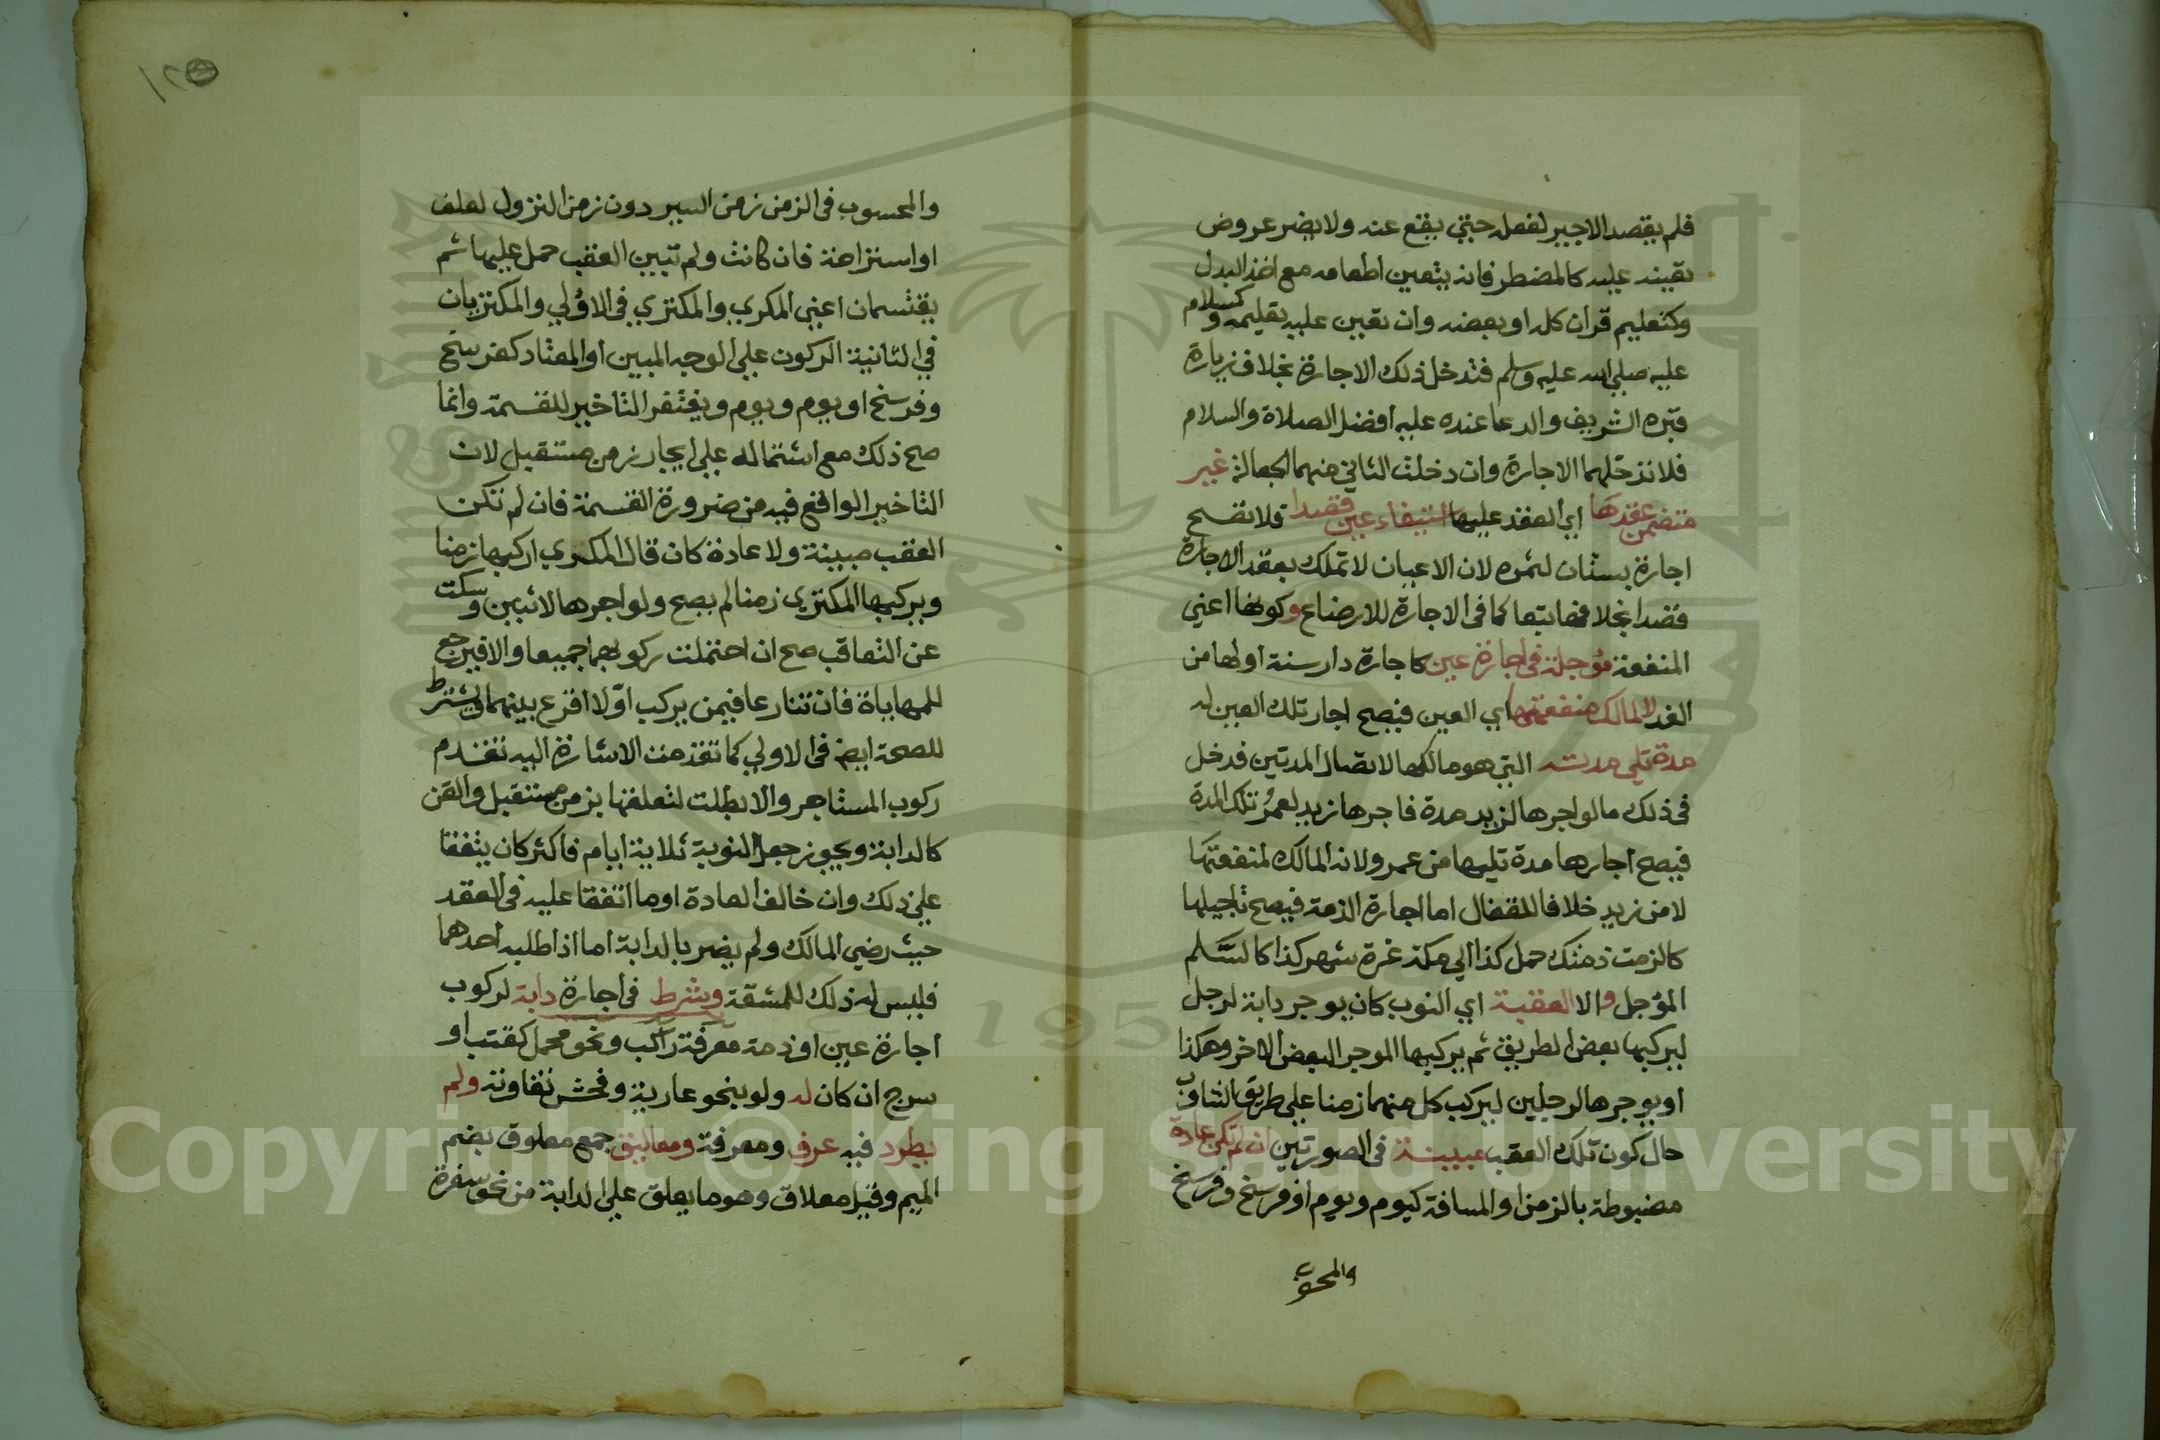 فلم يقصد الاجير لفعل حتي يقع عنه ولا يضر عروض
تعينه عليه كالمضطر فانه يتعين اطعامه مع اخذ البدل
وكتعليم قران كله او بعضه وان تعين عليه تعليمه وكسلام
عليه صلي الله عليه وسلم فتدخل ذلك الاجارة بخلاف زيارة
قبره الشريف والدعا عنده عليه افضل الصلاة والسلام
فلا تدخلهما الاجارة وان دخلت الثاني منهما الجعالة غير
متضمن عقدها اي العقد عليها استيفاء عين قصدا فلا تصح
اجارة بستان لثمره لان الاعيان لا تملك بعقد الاجارة
قصدا بخلافها تبعا كما في الاجارة للارضاع وكونها اعني
المنفعة مؤجلة في اجارة عين كاجارة دار سنة اولها من
الغد لا لمالك منفعتها اي العين فيصح اجار تلك العين له
مدة تلي مدته التي هو مالكها لاتصال المدتين فدخل
في ذلك ما لو اجرها لزيد مدة فاجرها زيد لعمرو تلك المدة
فيصح اجارها مدة تليها من عمرو لانه المالك لمنفعتها
لا من زيد خلافا للقفال اما اجارة الذمة فيصح تاجيلها
كالزمت ذمتك حمل كذا الي مكة غرة شهر كذا كالسلم
المؤجل والا العقبة اي النوب كان يوجر دابة لرجل
ليركبها بعض الطريق ثم يركبها الموجر البعض الاخر وهكذا
او يوجرها لرجلين ليركب كل منهما زمنا علي طريق التناوب
حال كون تلك العقب مبينة في الصورتين ان لم تكن عادة
مضبوطة بالزمن او المسافة كيوم ويوم او فرسخ وفرسخ
والمحسوب
١٢٥
والمحسوب في الزمن زمن السير دون زمن النزول لعلف
او استراحة فان كانت ولم تبين العقب حمل عليها ثم
يقتسمان اعني المكري والمكتري في الاولي والمكتريان
في الثانية الركوب علي الوجه المبين او المعتاد كفرسخ
وفرسخ او يوم ويوم ويغتفر التاخير للقسمة وانما
صح ذلك مع اشتماله علي ايجار زمن مستقبل لان
التاخير الواقع فيه من ضرورة القسمة فان لم تكن
العقب مبينة ولا عادة كان قال المكري اركبها زمنا
ويركبها المكتري زمنا لم يصح ولو اجرها لاثنين وسكت
عن التعاقب صح ان احتملت ركوبهما جميعا والا فيرجع
للمهاياة فان تنازعا فيمن يركب اولا اقرع بينهما ويشترط
للصحة ايض في الاولي كما تقدمت الاشارة اليه تقدم
ركوب المستاجر والا بطلت لتعلقها بزمن مستقبل والقن
كالدابة ويجوز جعل النوبة ثلاثة ايام فاكثر كان يتفقا
علي ذلك وان خالف العادة او ما اتفقا عليه في العقد
حيث رضي المالك ولم يضر بالدابة اما اذا طلبه احدهما
فليس له ذلك للمشقة وشرط في اجارة دابة لركوب
اجارة عين او ذمة معرفة راكب ونحو محمل كقتب او
سرج ان كان له ولو بنحو عارية وفحش تفاوته ولم
يطرد فيه عرف ومعرفة ومعاليق جمع معلوق بضم
الميم وقيل معلاق وهو ما يعلق علي الدابة من نحو سفرة
Copyright © King Saud University